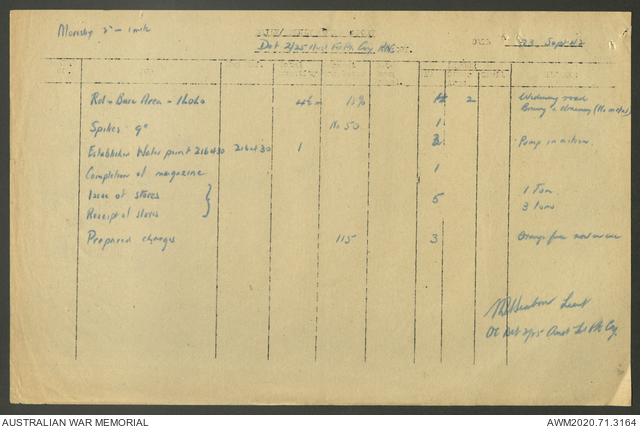 Moresby 2" - 1 mile
Det 2/25 Aust Fd Pk Coy RAE
23 Sept 42
Rd - Base Area - Ilolo 4½ m 15% 2 Widening road
Spikes - 9" No 50 1
Established Water point 216430 216430 1 2 Pump in action.
Completion of magazine 1
Issue of stores } 5 1 Ton
Receipt of stores 3 tons
Prepared charges 115 3 Orange fuse now in use
Lieut
OC Det 2/25 Aust Fd Pk Coy
AUSTRALIAN WAR MEMORIAL AWM2020.71.3164